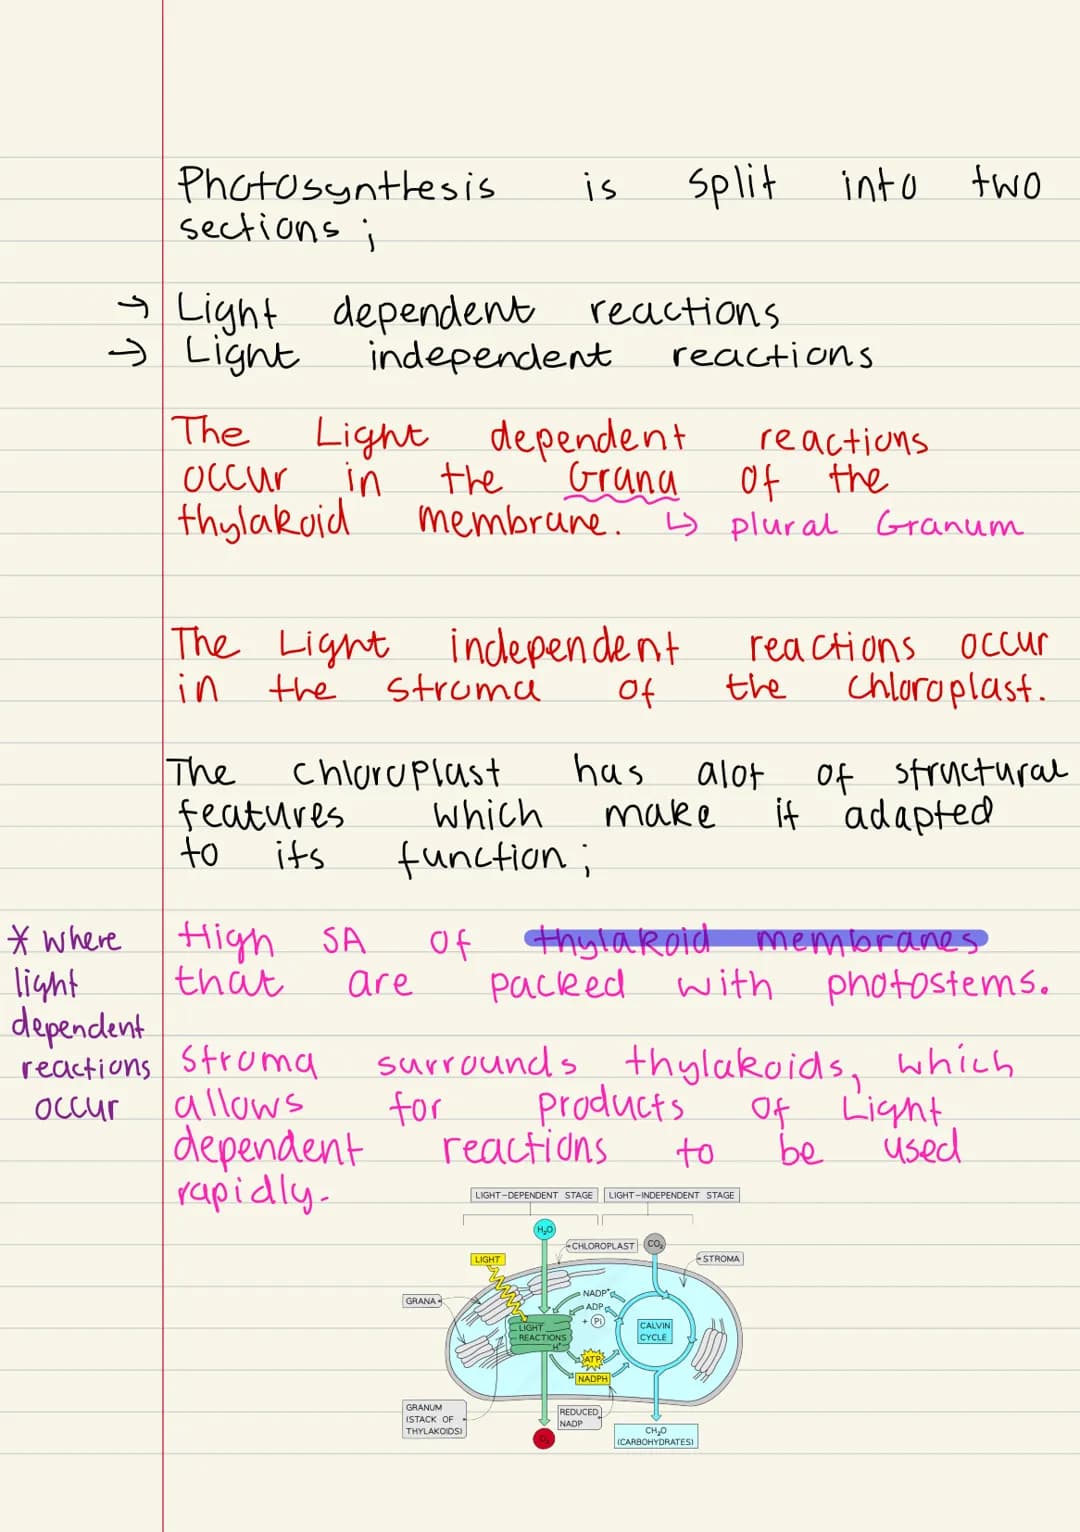 Photosynthesis is split into two
sections ;
→ Light dependent reactions
→ Light independent reactions
The Light dependent reactions
occur in the Grana of the
thylakoid membrane. ↳ plural Granum
The Light independent reactions occur
in the stroma of the chloroplast.
The chloroplast has alot of structural
features which make it adapted
to its function ;
* where
light
dependent
reactions
occur
High SA of thylakoid membranes
that are packed with photostems.
Stroma surrounds thylakoids, which
allows for products of Light
dependent reactions to be used
rapidly.
LIGHT-DEPENDENT STAGE
LIGHT-INDEPENDENT STAGE
H₂O
CHLOROPLAST
CO₂
LIGHT
STROMA
GRANA
NADP⁺
ADP
+ Pi
LIGHT
REACTIONS
H⁺
CALVIN
CYCLE
ATP
NADPH
GRANUM
(STACK OF
THYLAKOIDS)
REDUCED
NADP
O₂
CH₂O
(CARBOHYDRATES)